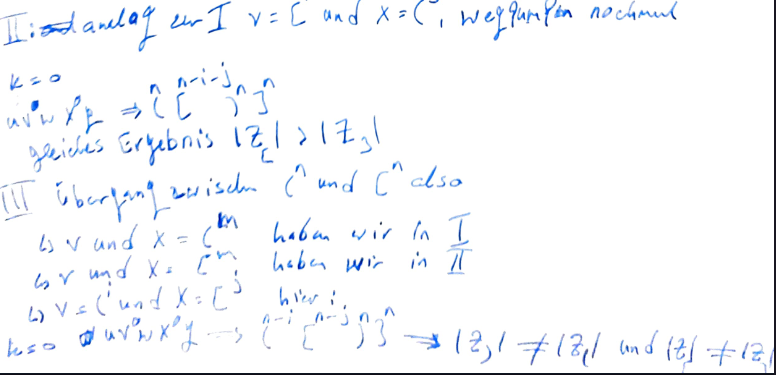 II: analog zu I v = [ und x = (, wegpumpen nochmal
k=0
uv⁰wx⁰y ⇒ (ⁿ [ⁿ⁻ⁱ⁻ʲ )ⁿ ]ⁿ
gleiches Ergebnis |Z[| > |Z]|
III Übergang zwischen (ⁿ und [ⁿ also
↳ v und x = (ᵐ haben wir in I
↳ v und x = [ᵐ haben wir in II
↳ v = (ⁱ und x = [ʲ hier :
k=0 uv⁰wx⁰y → (ⁿ⁻ⁱ [ⁿ⁻ʲ )ⁿ ]ⁿ → |Z)| ≠ |Z(| und |Z[| ≠ |Z]|